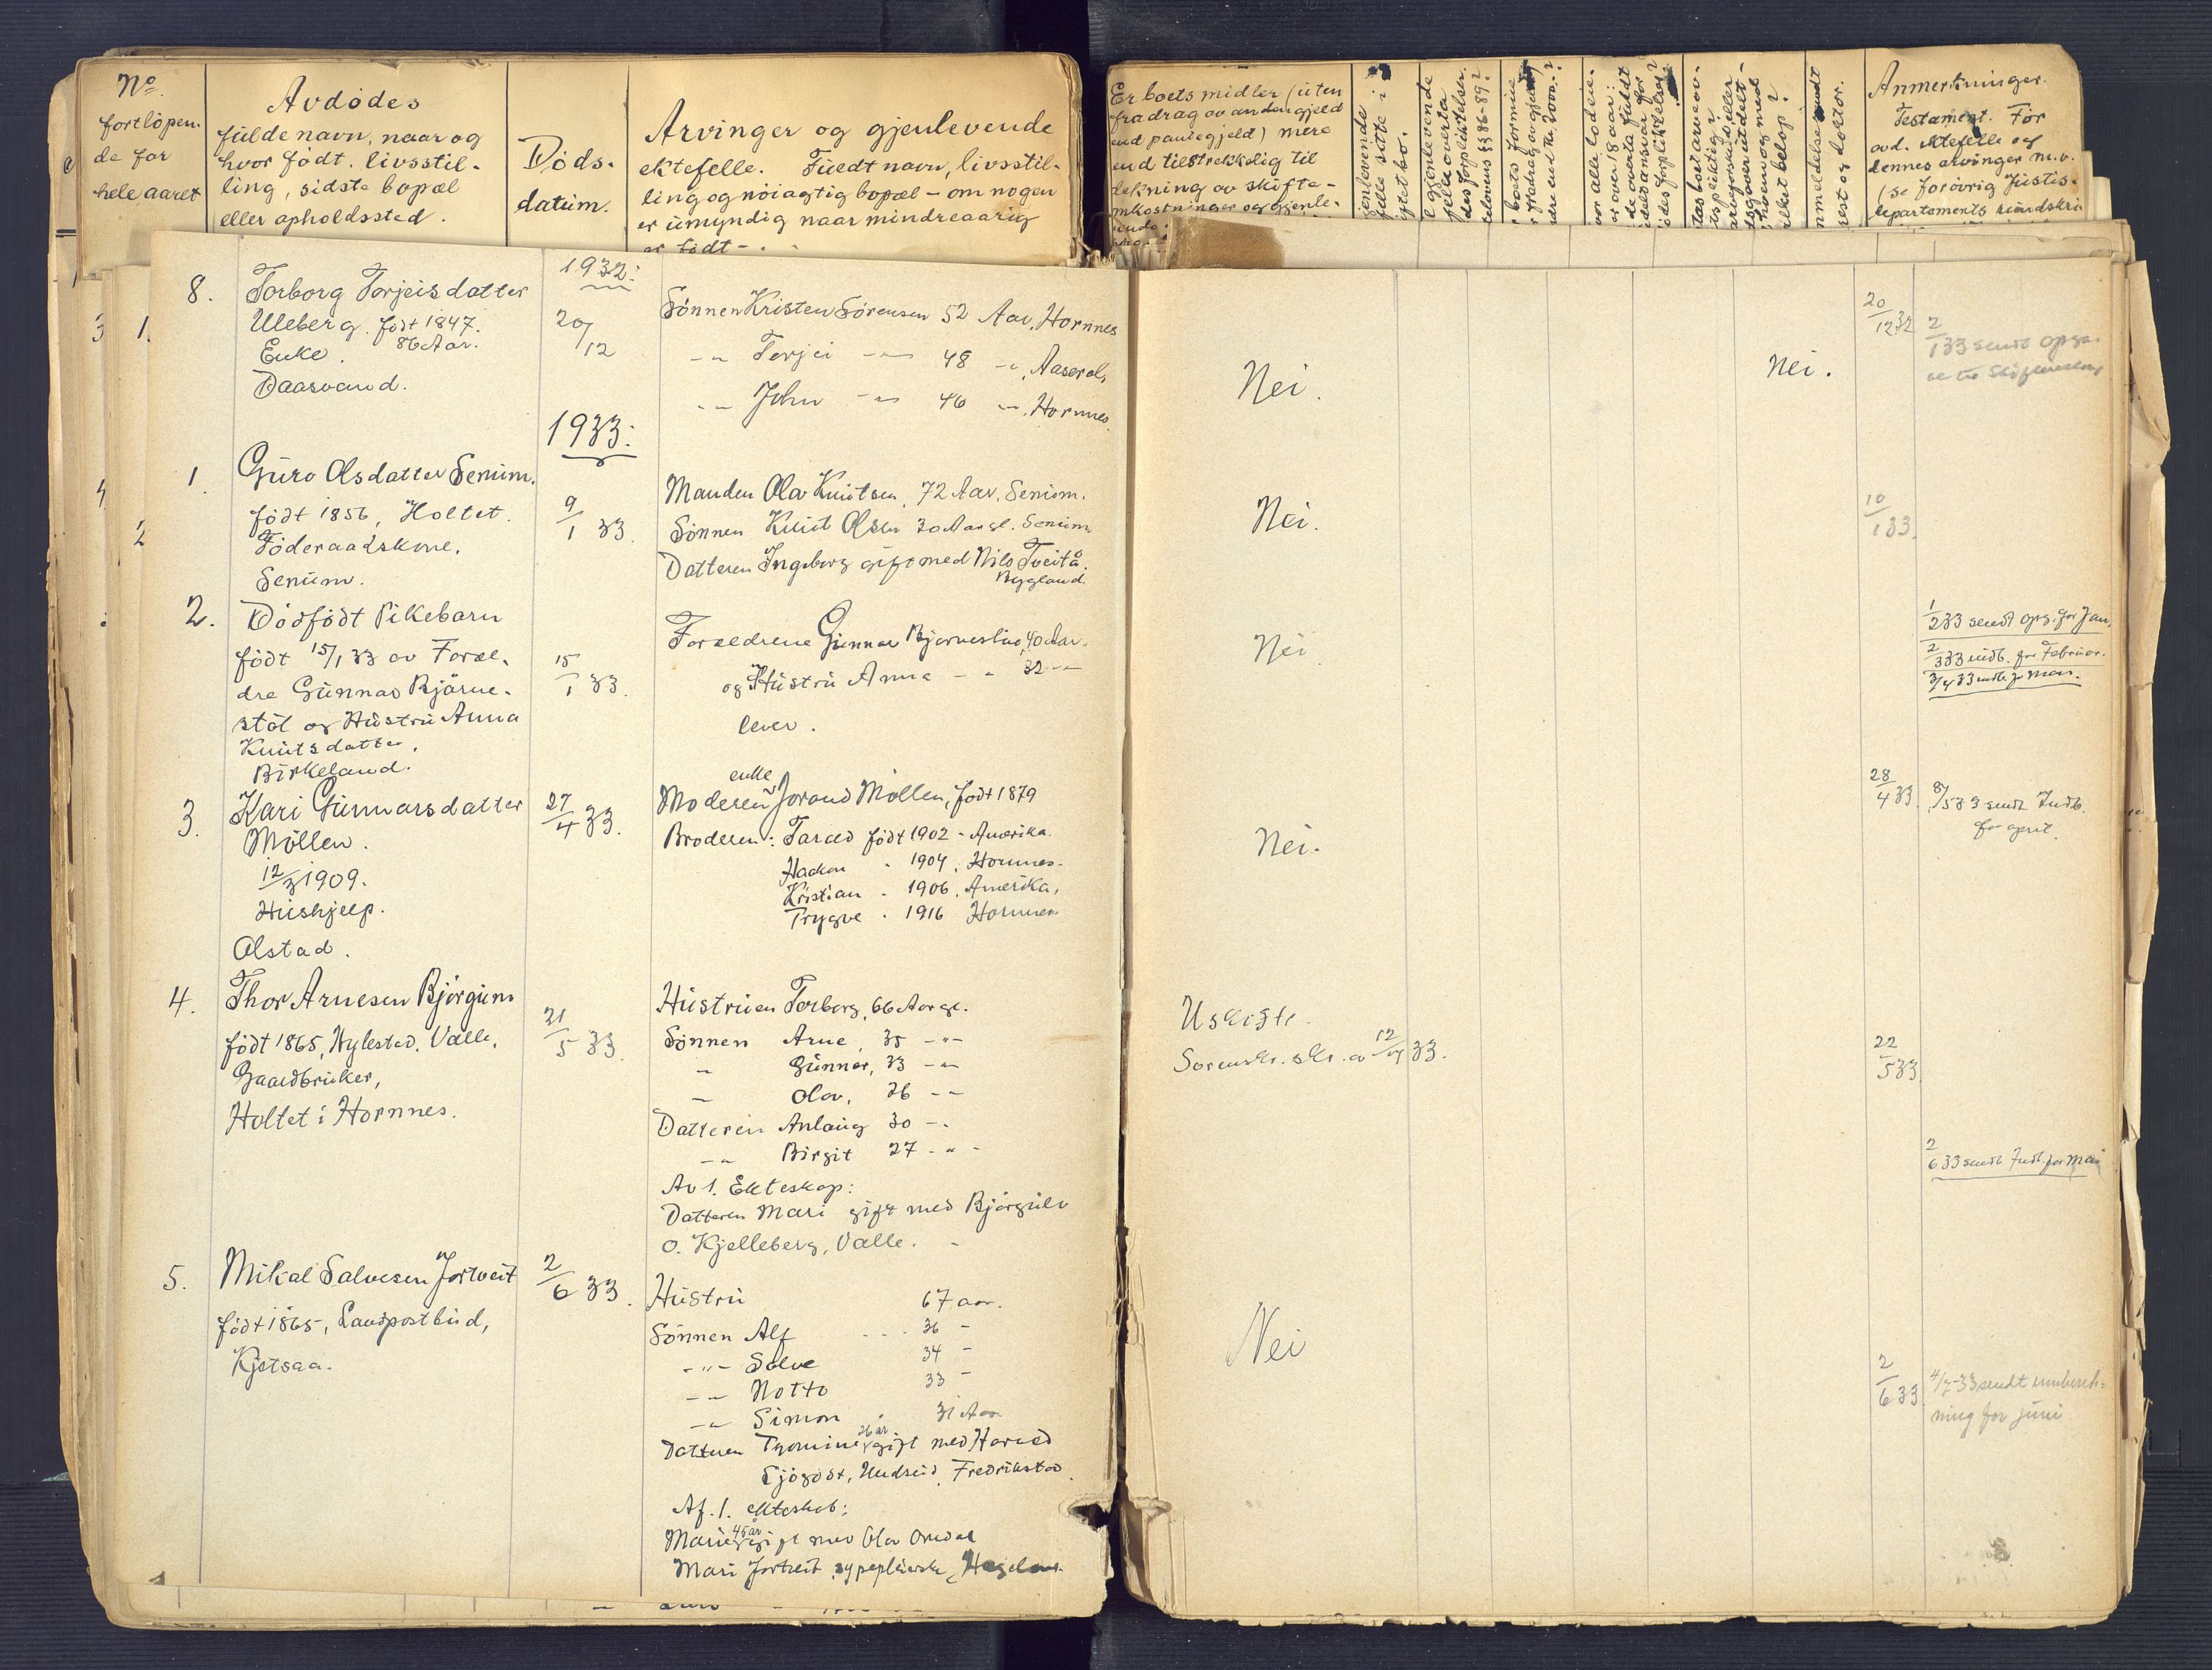 No.
fortløpen-
de for
hele aaret
Avdødes
fulde navn, naar og
hvor født. livsstil-
ling, sidste bopæl
eller opholdssted.
Døds-
datum.
Arvinger og gjenlevende
ektefelle. Fuldt navn, livsstil-
ling og nøiagtig bopæl - om nogen
er umyndig naar mindreaarig
er født -
Er boets midler (uten
fradrag av anden gjeld
end pantegjeld) mere
end tilstrekkelig til
dekning av skifte-
omkostninger og gjenle-
Anmerkninger.
Testament. For
avd. ektefelle og
dennes arvinger m.v.
(se forøvrig Justis-
departements rundskri
8.
Torborg Torjeisdatter
Uleberg. født 1847.
Enke. 86 Aar.
Daasvand.
1932:
20/12
Sønnen Kristen Sørensen 52 Aar, Hornnes
-"- Torjei -"- 48 -"-, Aaseral,
-"- John -"- 46 -"-, Hornnes.
Nei.
Nei.
20/12 32
2/1 33 sendt opga-
1933:
1.
Guro Olsdatter Senum.
født 1856, Holtet.
Føderaadskone.
Senum.
9/1 33.
Manden Olav Knutsen, 72 Aar, Senum.
Sønnen Knut Olsen 30 Aar gl. Senum
Datteren Ingeborg gift med Nils Tveitå.
Bygland.
Nei.
10/1 33.
2.
Dødfødt Pikebarn
født 15/1 33 av Foræl-
dre Gunnar Bjørne-
støl og Hustru Anna
Knutsdatter,
Birkeland.
15/1 33.
Forældrene Gunnar Bjørnestøl, 40 Aar.
og Hustru Anna - " 32 -"-
lever.
Nei.
1/2 33 sendt opg. for Jan.
2/3 33 indb. for Februar.
3/4 33 indb. for Mars.
3.
Kari Gunnarsdatter
Møllen.
12/3 1909.
Hushjelp.
Olstad.
27/4 33.
enke
Moderen Jorand Møllen, født 1879
Broderen: Tarald født 1902 - Amerika.
Haakon " 1904, Hornnes.
Kristian " 1906, Amerika.
Trygve " 1916 Hornnes
Nei.
28/4 33
8/5 33 sendt Indb.
for april.
4.
Thor Arnesen Bjørgum
født 1865, Hylestad, Valle.
Gaardbruker,
Holtet i Hornnes.
21/5 33.
Hustruen Torborg, 66 Aar gl.
Sønnen Arne, 35 -"-
" Gunnar, 33 -"-
" Olav, 26 -"-
Datteren Anlaug 30 -"
-"- Birgit 27 -"-
Av 1. Ekteskap:
Datteren Mari gift med Bjørgulv
O. Kjelleberg, Valle.
Uskifte.
Sorenskr. skr. av 12/7 33.
22/5 33
2/6 33 sendt Indb. for Mai
5.
Mikal Salvesen Jortveit
født 1865, Landpostbud,
Kjetsaa.
2/6 33.
Hustru 67 aar.
Sønnen Alf 36 -
-"- Salve 34 -
-"- Notto 33 -
-"- Simon 31 Aar
26 år
Datteren Tomine gift med Harald
Sjøgodt, Fredrikstad.
Af. 1. ekteskab:
45 år
Marie gift med Olav Omdal
Mari Jortveit, sypepleierske,
Nei
2/6 33
4/7-33 sendt innberet-
ning for juni